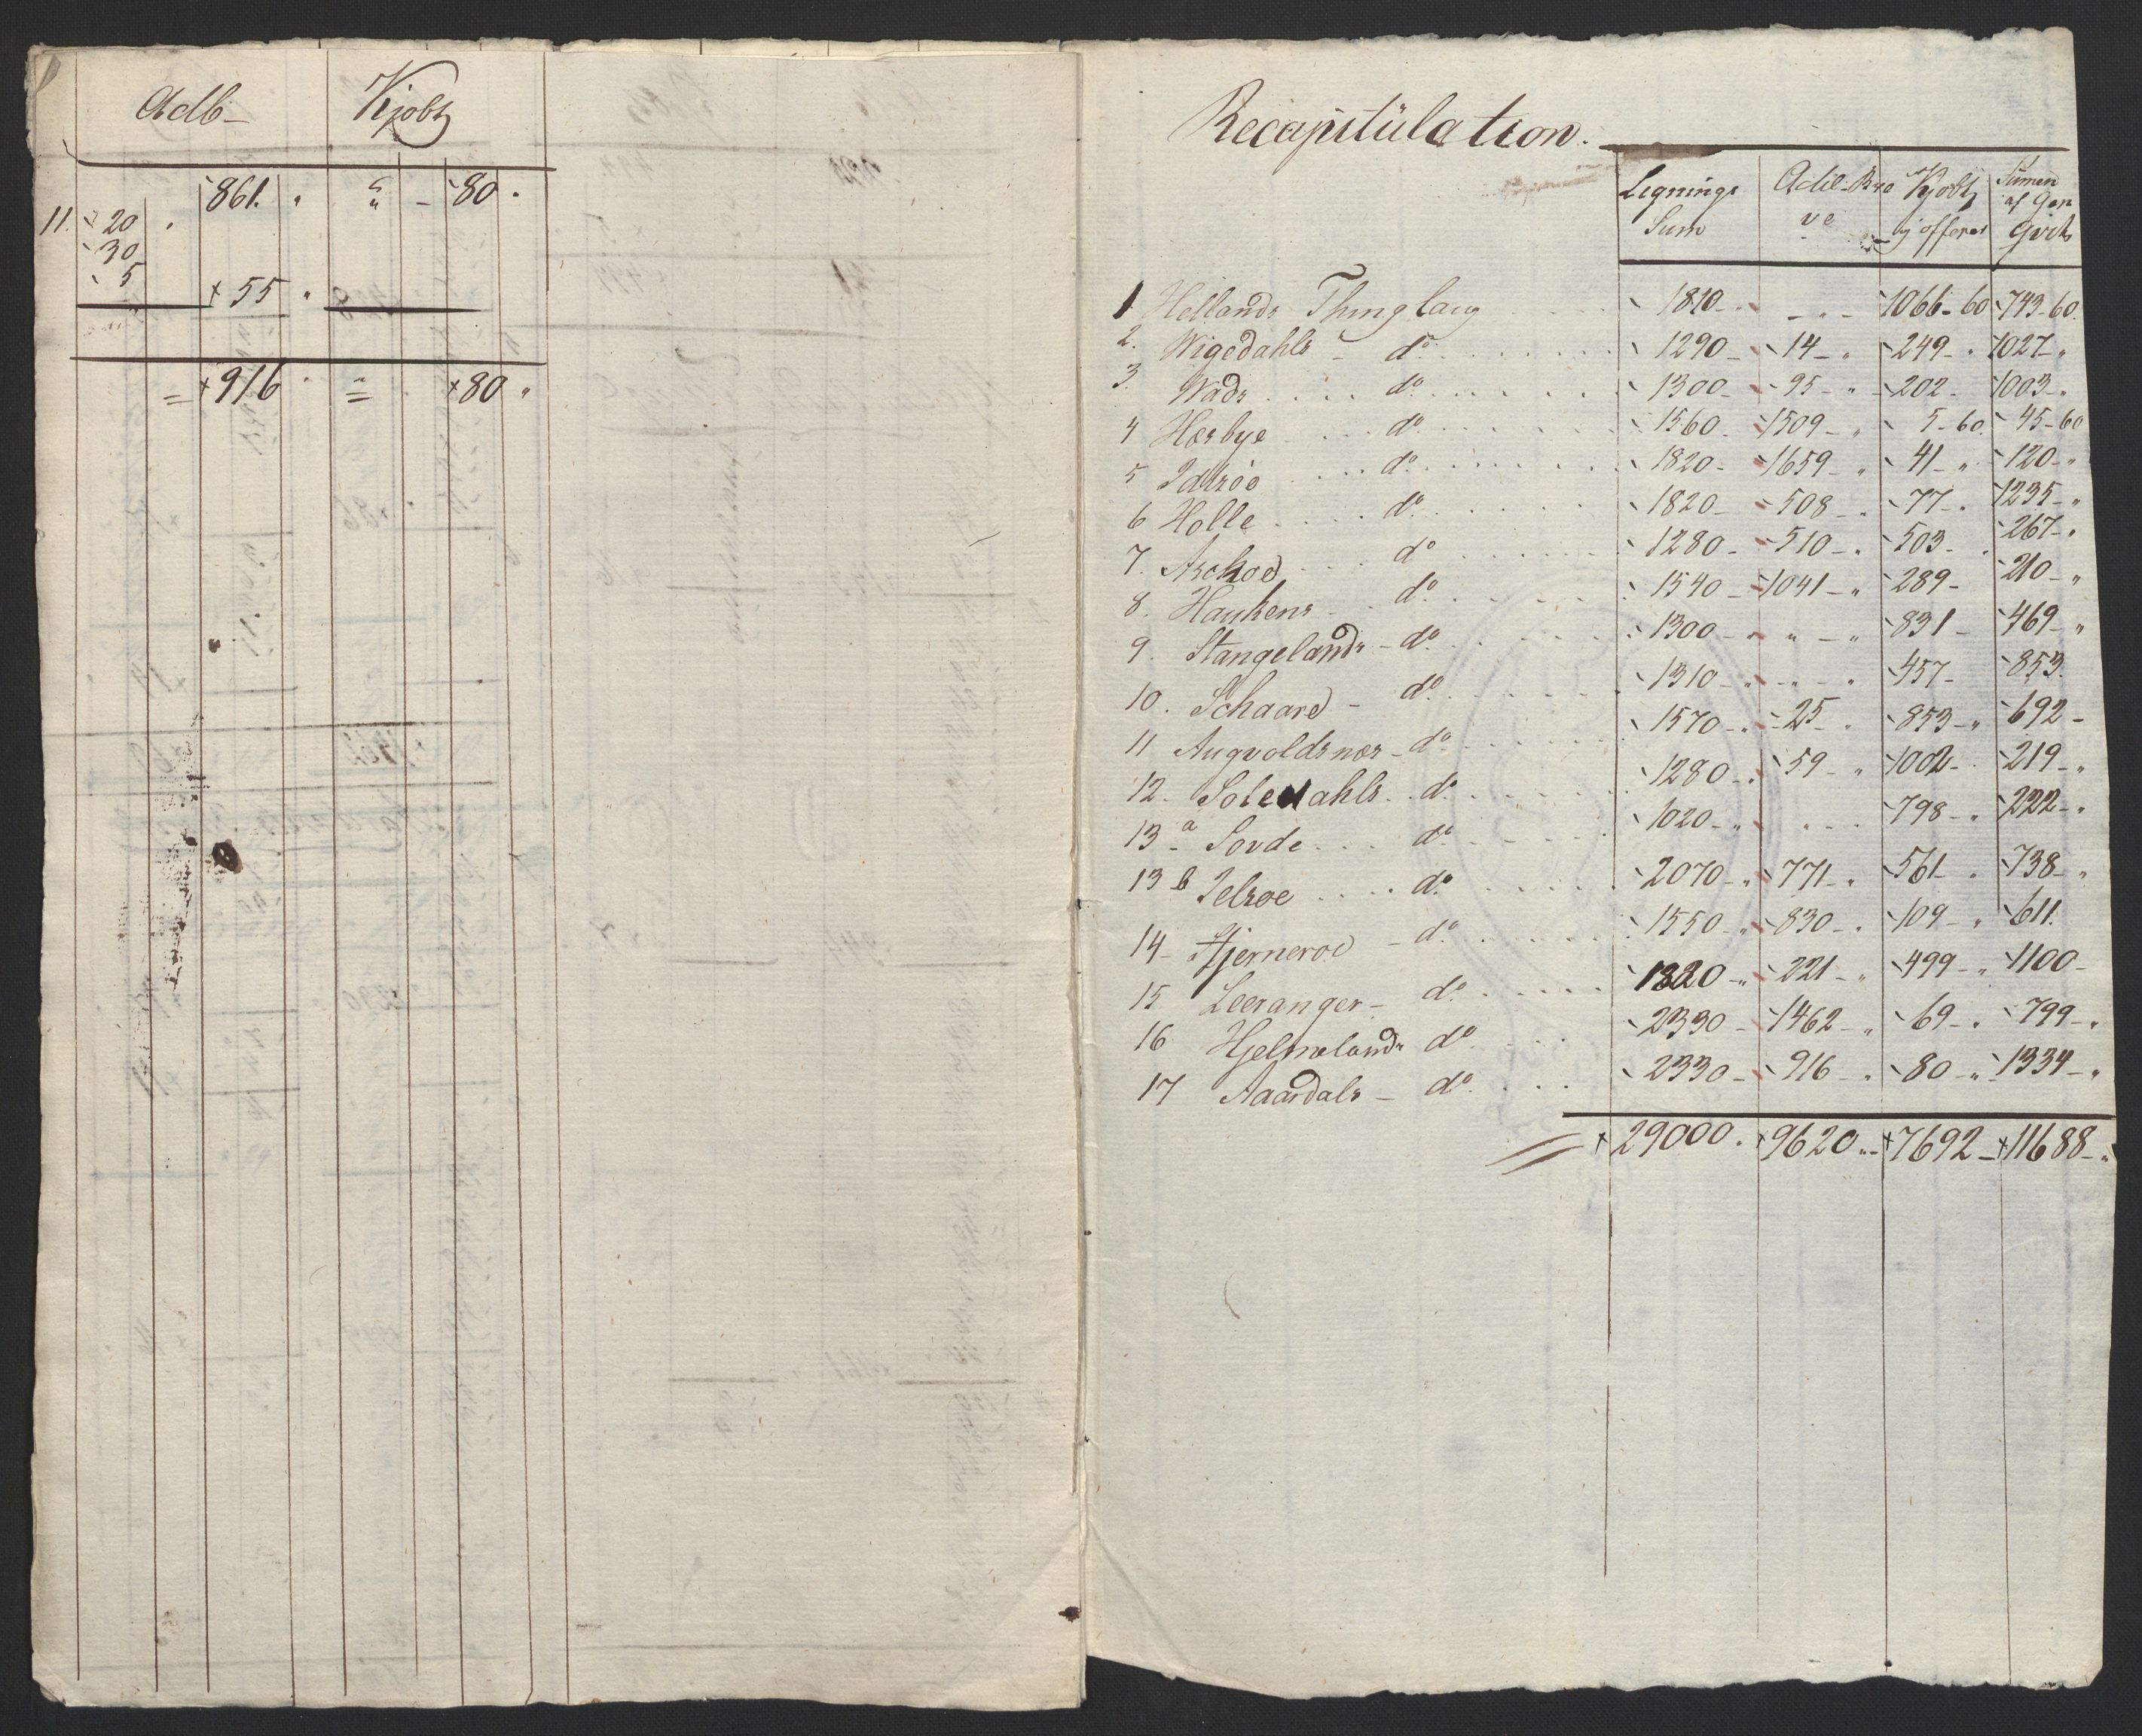 Adb- Kjobtz
861. " " - 80.
11. 20 "
30
5
55 "
= 916 " = 80 "
Recapitulation.
Legnings Adel-Bre Kjobtz Sumen
Sum ve og offeret af Gen
Gvish
1 Hellands Thinglaug 1810 - " - " - 1066-60 743-60.
2. Wigedahls - do. 1290 - 14 - " 249 - " 1027 - "
3. Wads do. 1300 - 95 - " 202 - 1003 - "
4 Hesbye do. 1560 - 1509 - " 5-60. 45-60
5 Idtsöe do. 1820 - 1659 - " 41 - " 120 - "
6 Holle do. 1820 - 508 - " 77 - " 1235 - "
7. Aschoe do 1280 - 510 - " 503 - " 267 - "
8. Haukens do. 1540 - 1041 - " 289 - 210 - "
9. Stangelands - do. 1300 - " " - " 831 - 469 - "
10. Schaare - do. 1310 - " - " - " 457 - 853.
11 Augvoldsnæs - do. 1570 - " 25 " 853 - " 692 -
12. Soledahls. do. 1280 - " 59 - " 1002 - 219 - "
13 a Sovde do. 1020 - " " - 798 - " 222 - "
13 b Jelsoe do. 2070 - " 771 - " 561 - " 738 - "
14 - Hjerneroe - do. 1550 - " 830 - " 109 - " 611.
15 Leeranger - do. 1820 - " 221 - " 499 - " 1100 -
16 Hjelmelands do. 2330 - 1462 - " 69 - " 799 - "
17 Aaardals - do. 2330 - 916 - " 80 - " 1334 - "
29000. 9620 " - 7692 - 11688 - "